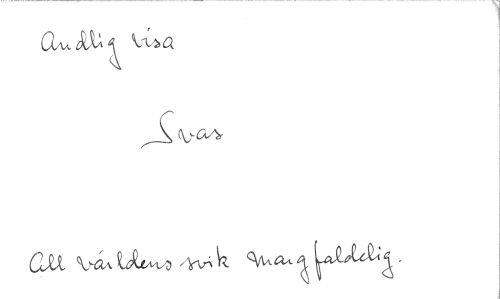 Andlig visa
Svas
All världens svik mangfaldelig.